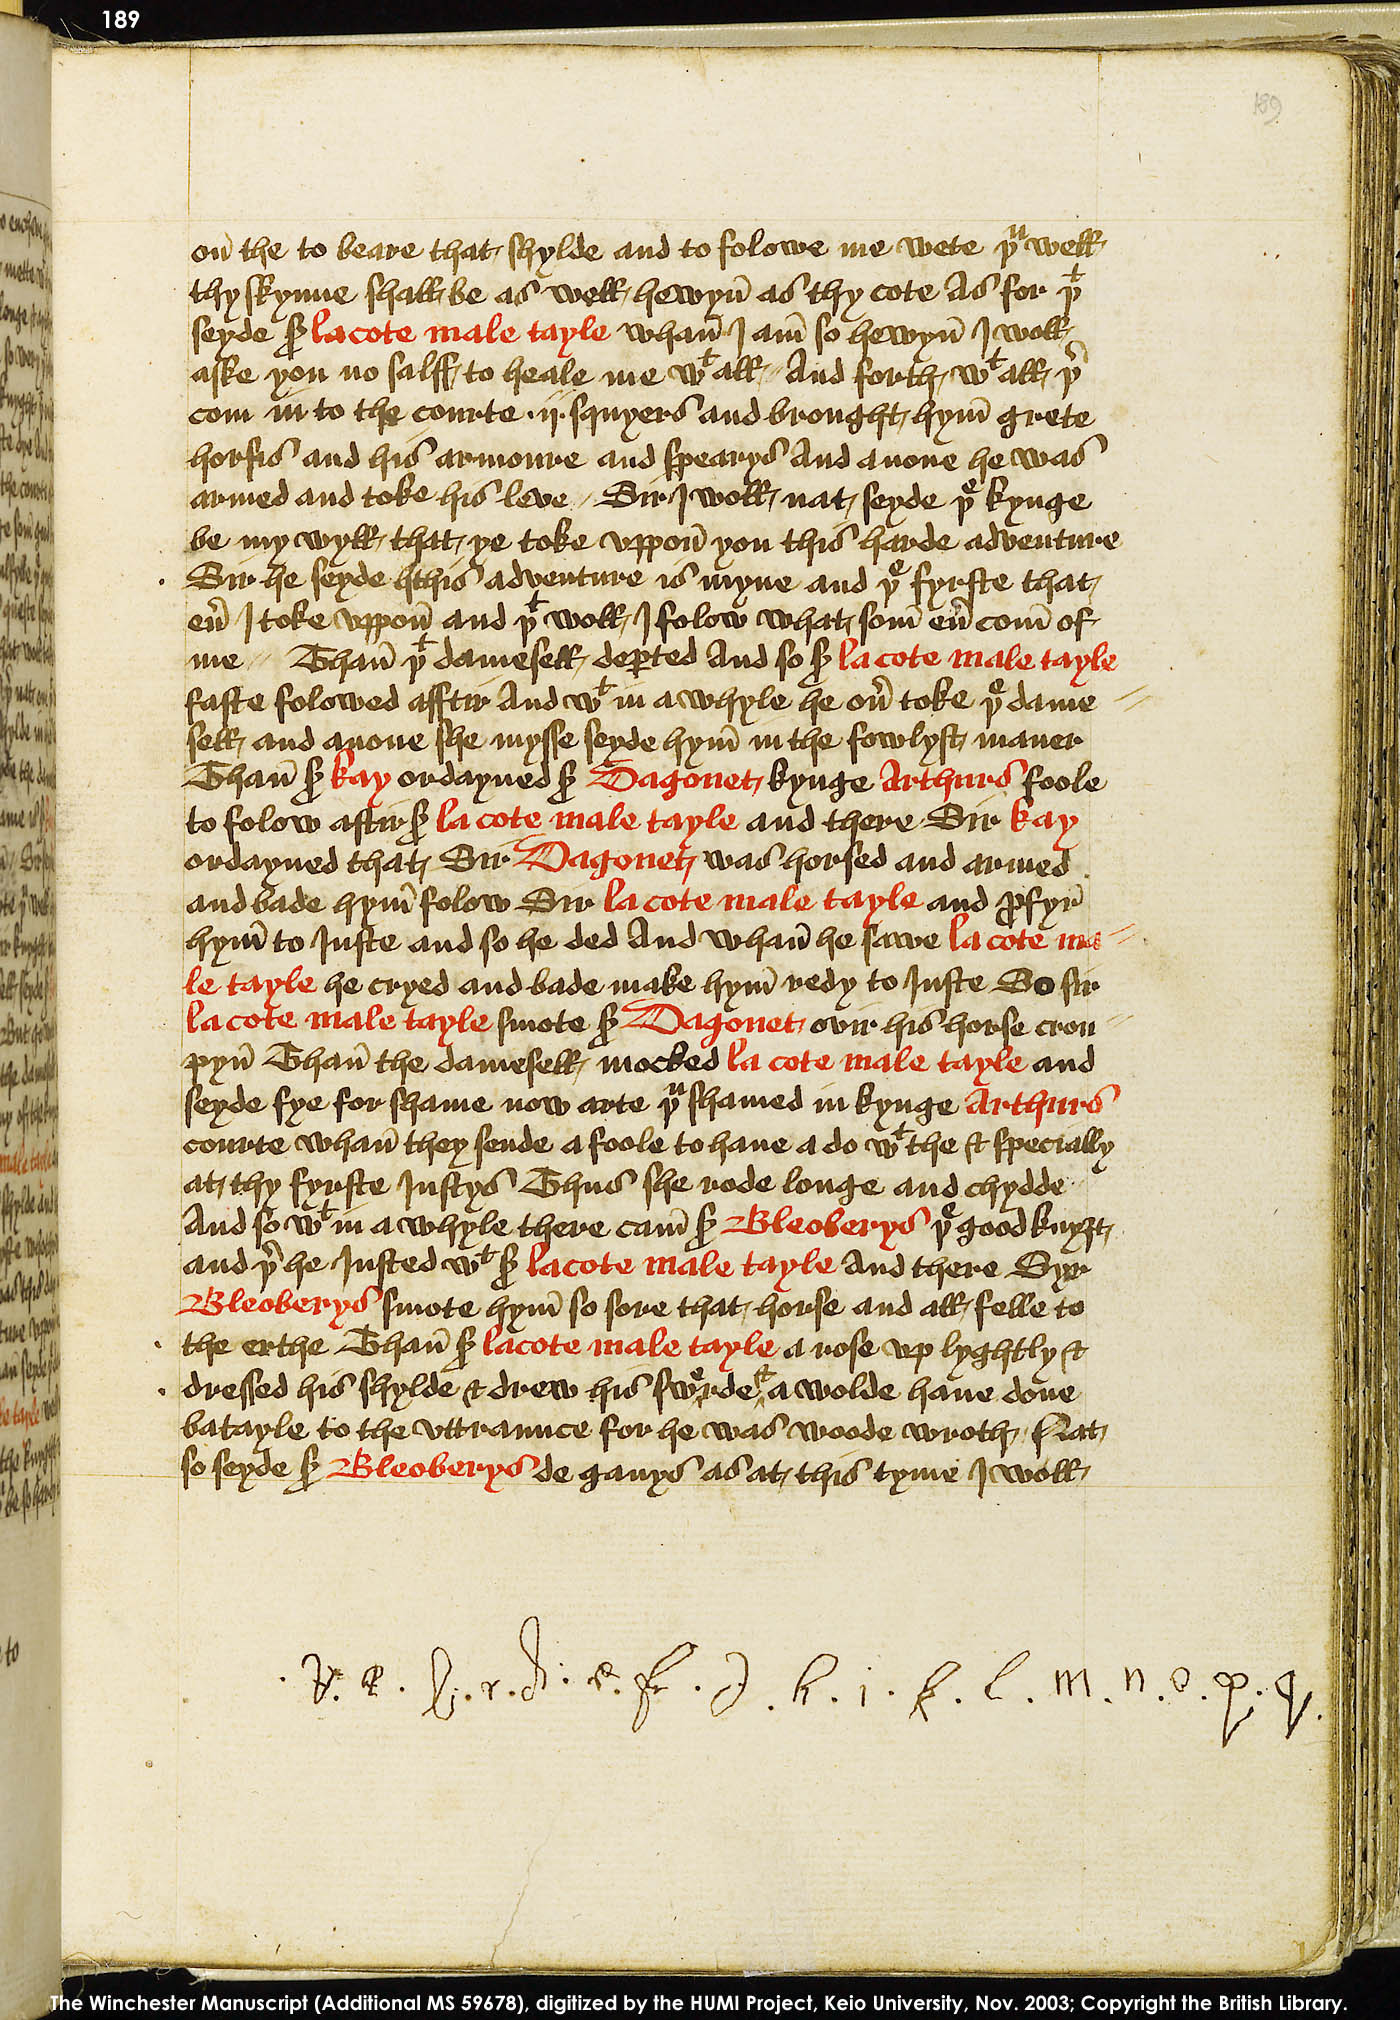 189
189
on̄ the to beare that shylde and to folowe me wete þᵘ well
thy skynne shall be as well hewyn̄ as thy cote As for þᵗ
seyde Sr̄ la cote male tayle whan̄ I am̄ so hewyn̄ I woll
aske you no salff to heale me wᵗ all // And forth wᵗ all þr̄
com in to the courte .ij. squyers and brought hym̄ grete
horsis and his armoure and spearys And anone he was
armed and toke his leve // Sir I woll nat seyde þᵉ kynge
be my wyll that ye toke vppon̄ you this harde adventure
Sir he seyde hthis adventure is myne and þᵉ fyrste that
eū I toke vppon̄ and þᵗ woll I folow what som̄ eū com̄ of
me // Than̄ þᵗ damesell deꝑted And so Sr̄ la cote male tayle
faste folowed afftir And wᵗ in a whyle he oū toke þᵉ dame //
sell and anone she mysse seyde hym̄ in the fowlyst maner
Than̄ Sr̄ kay ordayned Sr̄ Dagonet kynge Arthurs foole
to folow aftir Sr̄ la cote male tayle and there Sir kay
ordayned that Sir Dagonet was horsed and armed
and bade hym̄ folow Sir la cote male tayle and ꝓfyr̄
hym̄ to Juste and so he ded And whan̄ he sawe la cote ma //
le tayle he cryed and bade make hym̄ redy to Juste So sir
la cote male tayle smote Sr̄ Dagonet ovir his horse crou //
pyn̄ Than̄ the damesell mocked la cote male tayle and
seyde fye for shame now arte þᵘ shamed in kynge Arthurs
courte whan̄ they sende a foole to haue a do wᵗ the & specially
at thy fyrste Justys Thus she rode longe and chydde
And so wᵗ in a whyle there cam̄ Sr̄ Bleoberys þᵉ good knyȝt
and þr̄ he Justed wᵗ Sr̄ la cote male tayle And there Syr
Bleoberys smote hym̄ so sore that horse and all felle to
the erthe Than̄ Sr̄ la cote male tayle a rose vp lyghtly &
dressed his shylde & drew his swerde & a wolde haue done
batayle to the vttraunce for he was woode wroth // Nat
so seyde Sr̄ Bleoberys de ganys as at this tyme I woll
a. b. c. d. e. f. h. i. k. l. m. n. o. p. q.
The Winchester Manuscript (Additional MS 59678), digitized by the HUMI Project, Keio University, Nov. 2003; Copyright the British Library.